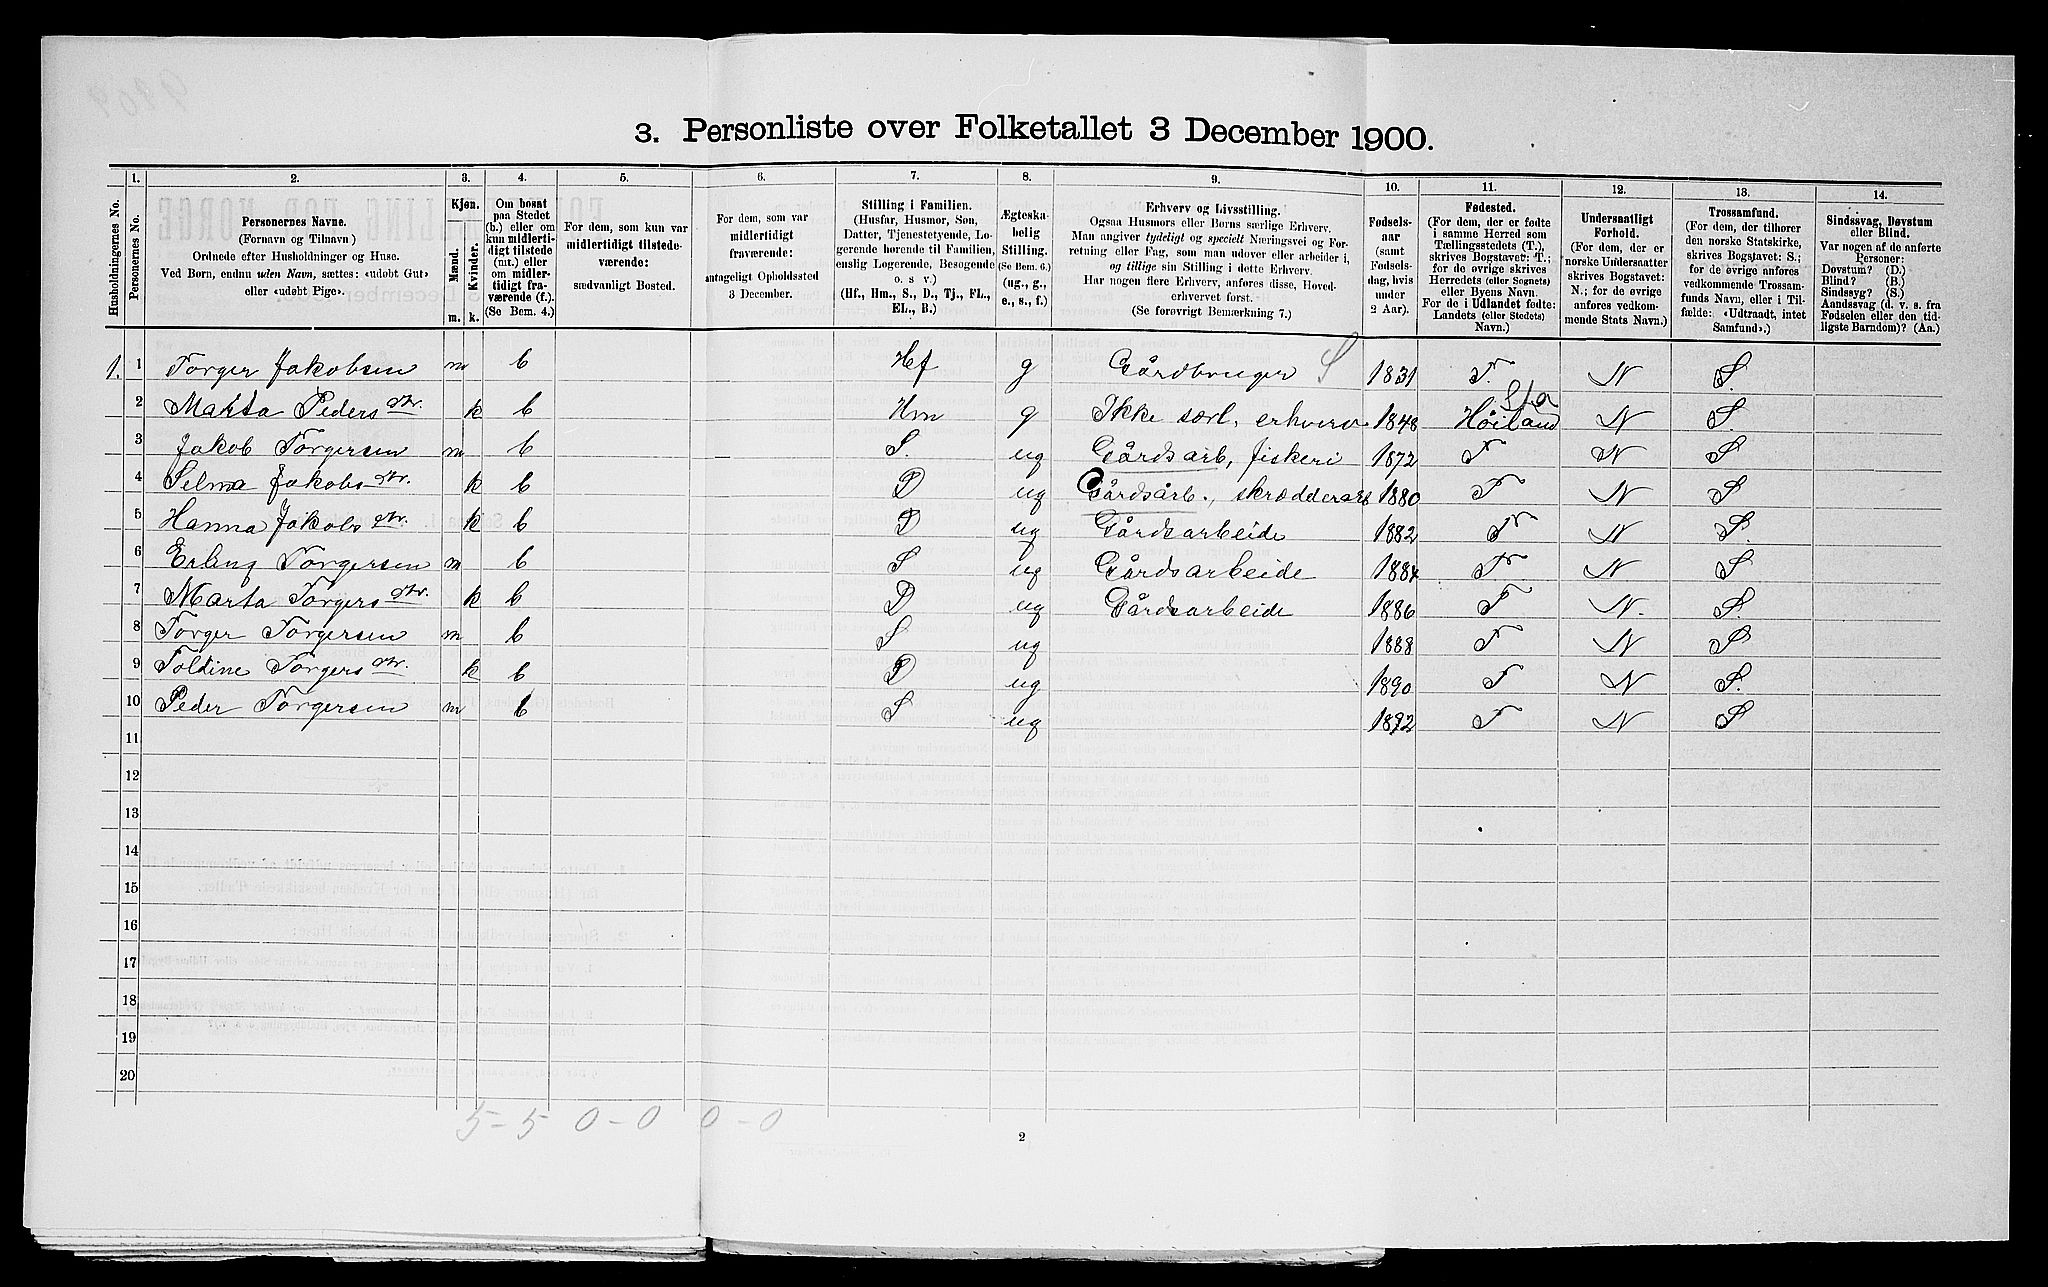 3. Personliste over Folketallet 3 December 1900.
1. 2. 3. 4. 5. 6. 7. 8. 9. 10. 11. 12. 13. 14.
Husholdningernes No.
Personernes No.
Personernes Navne.
(Fornavn og Tilnavn)
Ordnede efter Husholdninger og Huse.
Ved Børn, endnu uden Navn, sættes: «udøbt Gut»
eller «udøbt Pige».
Kjøn.
Mænd.
Kvinder.
m. k.
Om bosat
paa Stedet
(b.) eller om
kun midlerti-
digt tilstede
(mt.) eller
om midler-
tidigt fra-
værende (f.).
(Se Bem. 4.)
For dem, som kun var
midlertidigt tilstede-
værende:
sædvanligt Bosted.
For dem, som var
midlertidigt
fraværende:
antageligt Opholdssted
3 December.
Stilling i Familien.
(Husfar, Husmor, Søn,
Datter, Tjenestetyende, Lo-
gerende hørende til Familien,
enslig Logerende, Besøgende
o. s v.)
(Hf., Hm., S., D., Tj., FL.,
EL., B.)
Ægteska-
belig
Stilling.
(Se Bem. 6.)
(ug., g.,
e., s., f.)
Erhverv og Livsstilling.
Ogsaa Husmors eller Børns særlige Erhverv.
Man angiver tydeligt og specielt Næringsvei og For-
retning eller Fag, som man udover eller arbeider i,
og tillige sin Stilling i dette Erhverv.
Har nogen flere Erhverv, anføres disse, Hoved-
erhvervet først.
(Se forøvrigt Bemærkning 7.)
Fødsels-
aar
(samt
Fødsels-
dag, hvis
under
2 Aar).
Fødested.
(For dem, der er fødte
i samme Herred som
Tællingsstedets (T.),
skrives Bogstavet: T.;
for de øvrige skrives
Herredets (eller Sognets)
eller Byens Navn.
For de i Udlandet fødte:
Landets (eller Stedets)
Navn.)
Undersaatligt
Forhold.
(For dem, der er
norske Undersaatter
skrives Bogstavet:
N.; for de øvrige
anføres vedkom-
mende Stats Navn.)
Trossamfund.
(For dem, der tilhører
den norske Statskirke,
skrives Bogstavet: S.;
for de øvrige anføres
vedkommende Trossam-
funds Navn, eller i Til-
fælde: «Udtraadt, intet
Samfund».)
Sindssvag, Døvstum
eller Blind.
Var nogen af de anførte
Personer:
Døvstum? (D.)
Blind? (B.)
Sindssyg? (S.)
Aandssvag (d. v. s. fra
Fødselen eller den tid-
ligste Barndom)? (Aa.)
1. 1 Torger Jakobsen m b Hf g Gårdbruger S 1831 T. N S.
2 Marta Pedersdtr. k b Hm g Ikke særl. erhverv 1848 Höiland Sta N S.
3 Jakob Torgersen m b S. ug Gårdsarb, fiskeri 1872 T N S
4 Selma Jakobsdtr. k b D ug Gårdsarb., 1880 T N S
5 Hanna Jakobsdtr. k b D ug Gårdsarbeide 1882 T N S.
6 Erling Torgersen m b S ug Gårdsarbeide 1884 T N S
7 Marta Torgersdtr. k b D ug Gårdsarbeide 1886 T N. S.
8 Torger Torgersen m b S ug 1888 T N S
9 Toldine Torgersdtr. k b D ug 1890 T N S.
10 Peder Torgersen m b S ug 1892 T N S
11
12
13
14
15
16
17
18
19
20
5-5 0-0 0-0
2